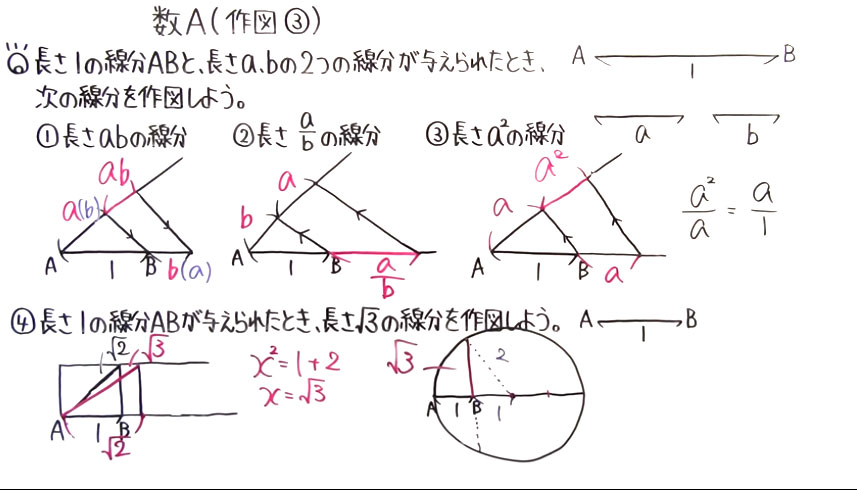 数A(作図③)
長さ1の線分ABと、長さa、bの2つの線分が与えられたとき、
次の線分を作図しよう。
A B
1
a b
①長さabの線分
②長さ a/b の線分
③長さa²の線分
ab
a(b)
A 1 B b(a)
a
b
A 1 B
a/b
a²
a
A 1 B a
a²/a = a/1
④長さ1の線分ABが与えられたとき、長さ√3の線分を作図しよう。
A B
1
√2 √3
A 1 B
√2
x²=1+2
x=√3
√3
2
A 1 B 1